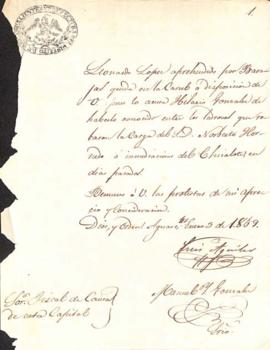 1.
Leonardo Lopez aprehendido por
queda en la Carcel a disposicion de
V. pues lo acusa Hilario Gonzalez de
haberlo conocido entre los ladrones que ro
baron la Carga del S.D. Norberto
á inmediaciones del en
dias pasados.
Renuevo á V. las protestas de mi apre
cio y consideracion.
Dios, y Orden Enero 3 de 1862.
Luis Aguilar
Manuel Gonzalez
Srio.
Sor. Fiscal de
de esta Capital